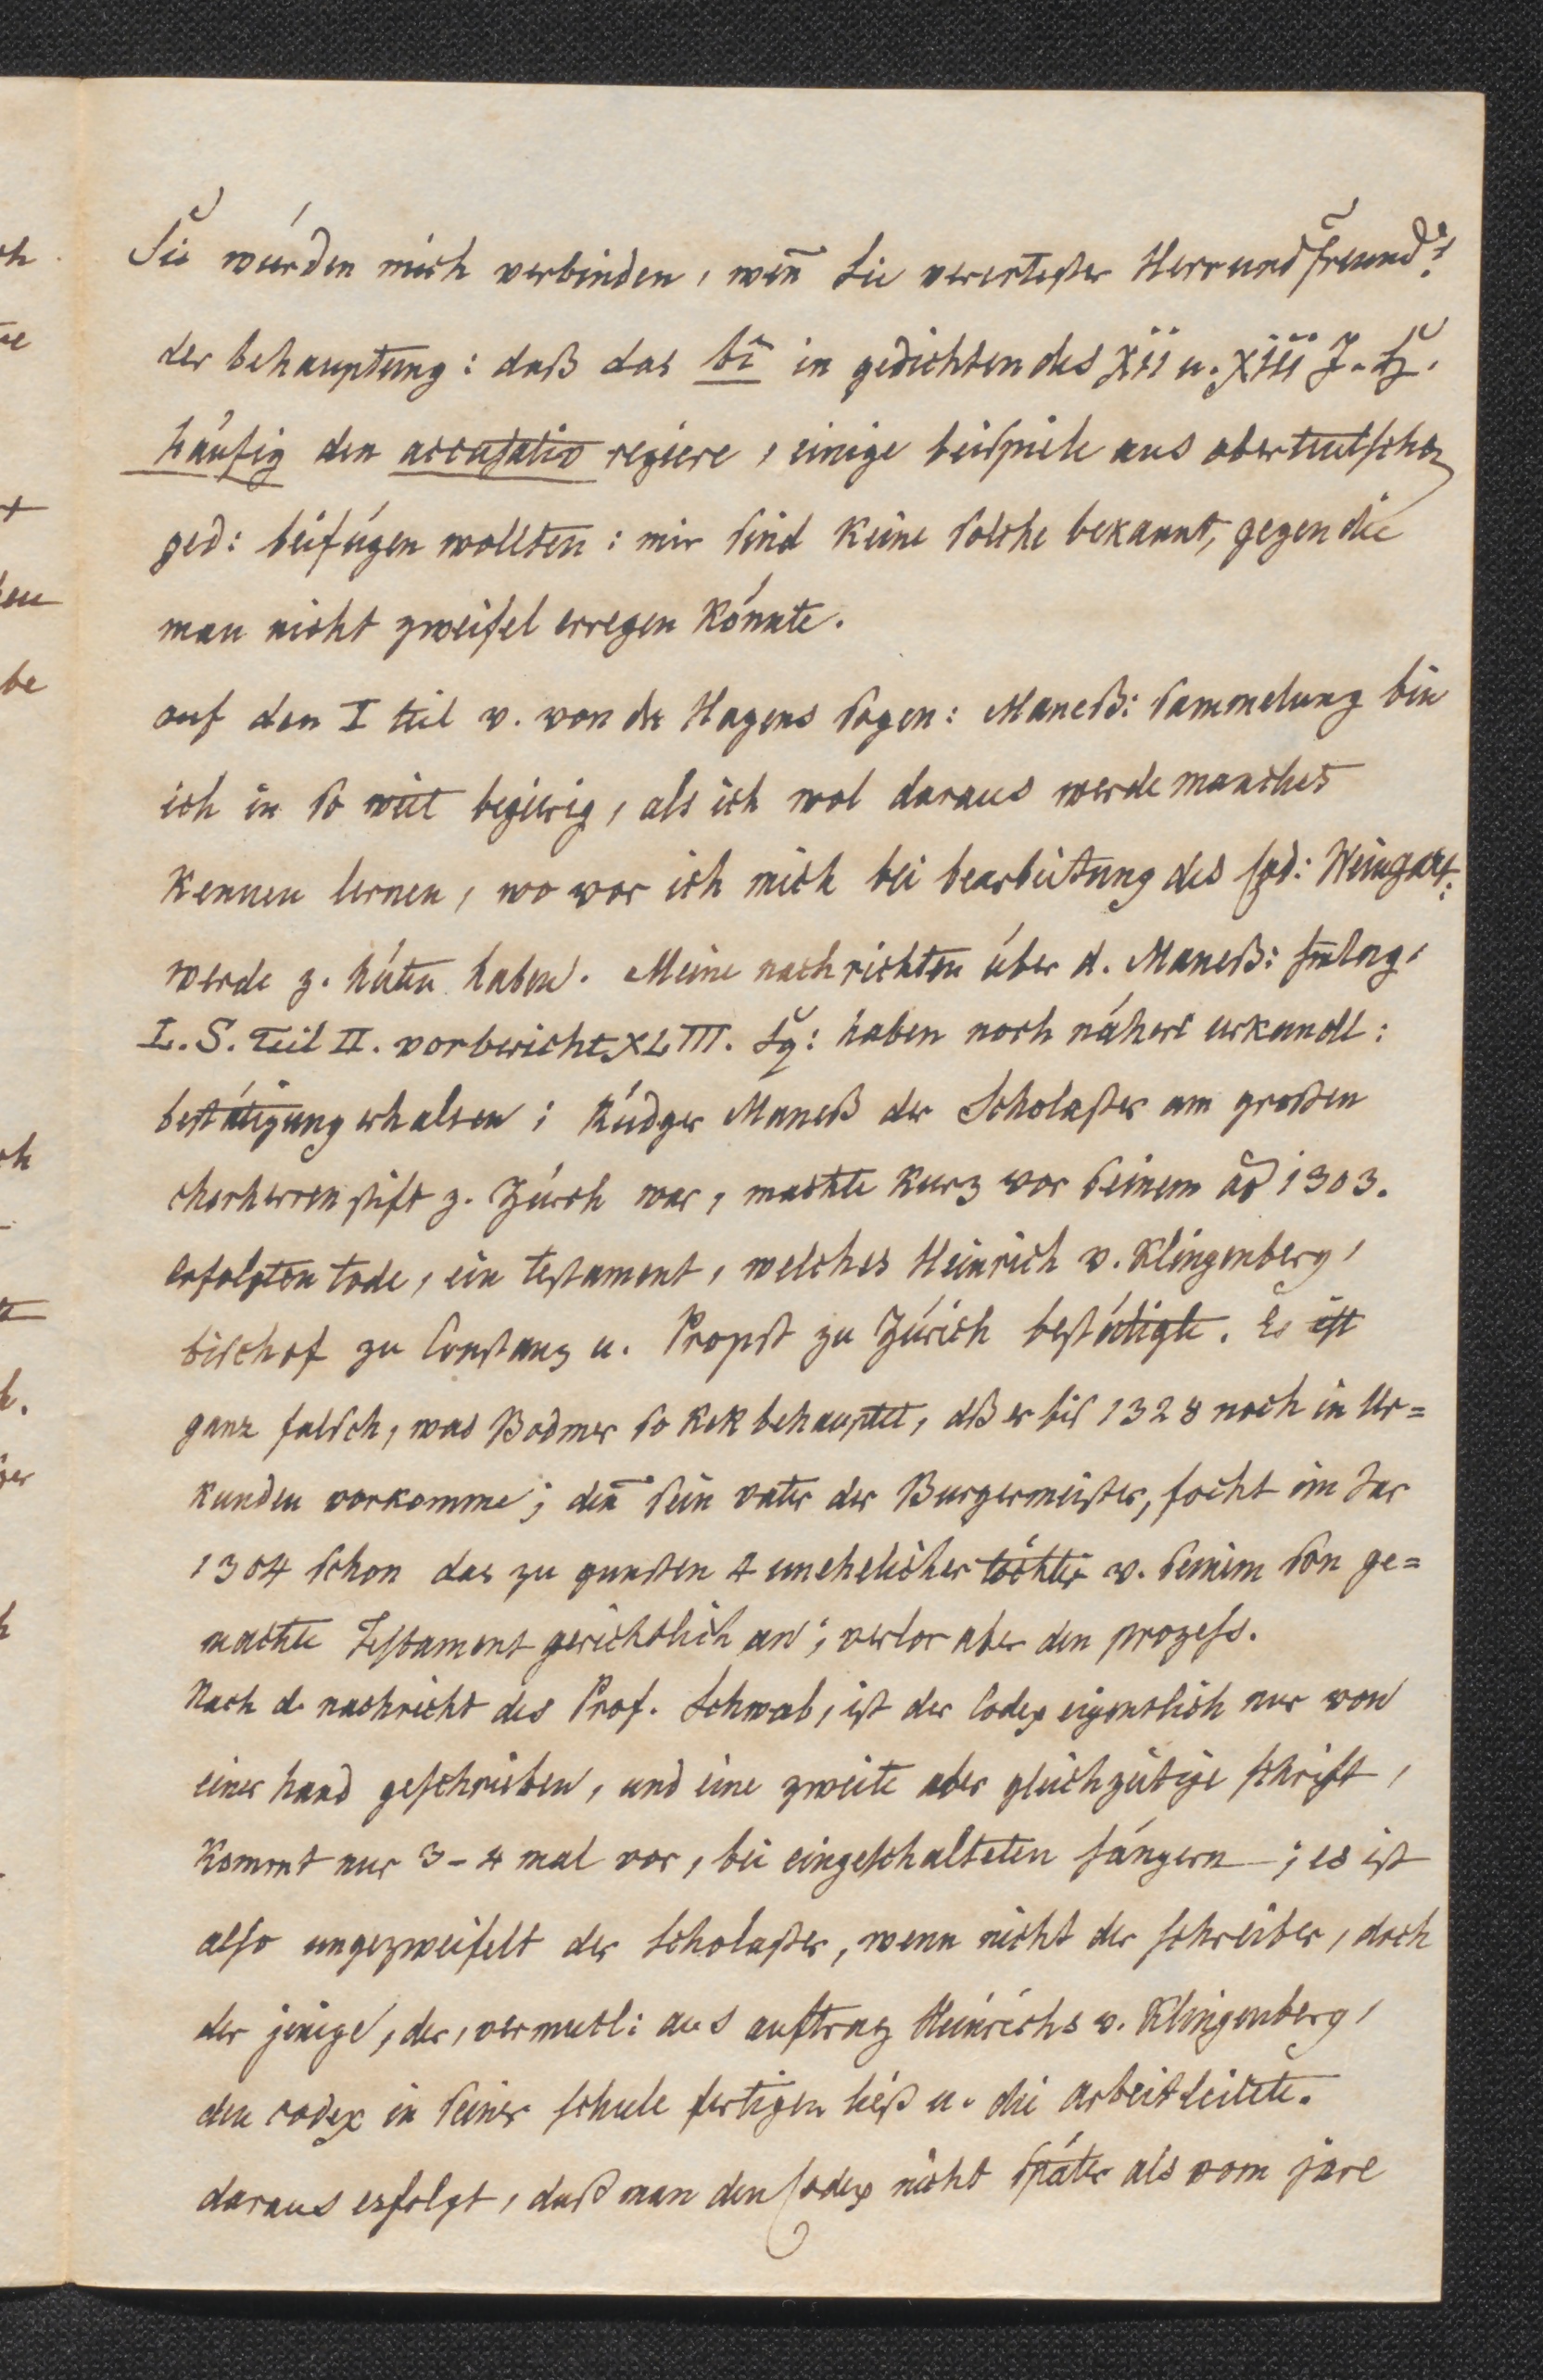 Sie würden mich verbinden, weñ Sie verertester Herr und Freund!
der behauptung: daß das bî in gedichten des XII u. XIII J. H.
häufig den accusativ regiere, einige beispiele aus oberteutschen
ged: beifügen wollten: mir sind keine solche bekannt, gegen die
man nicht zweifel erregen könnte.
auf den I teil v. von der Hagens sogen: Maneß: sammelung bin
ich in so weit begierig, als ich wol daraus werde manches
kennen lernen, wo vor ich mich bei bearbeitung des Cod: Weingart:
werde z. hüten haben. Meine nachrichten über d. Maneß: smlng.
L. S. Teil II. vorbericht XLIII. fg: haben noch nähere urkundl:
bestätigung erhalten; Rüdger Maneß der Scholaster am großen
chorherrenstift z. Zürch war, machte kurz vor seinem aō 1303.
erfolgten tode, ein testament, welches Heinrich v. Klingenberg,
bischof zu Constanz u. Propst zu Zürich bestätigte. Es ist
ganz falsch, was Bodmer so kek behauptet, dß er bis 1328 noch in Ur=
kunden vorkomme; deñ sein vater der Burgermeister, focht im Jar
1304 schon das zu gunsten 4 unehelicher töchter v. seinem son ge=
machte Testament gerichtlich an; verlor aber den prozess.
Nach d. nachricht des Prof. Schwab, ist der Codex eigentlich nur von
einer hand geschrieben, und eine zweite aber gleichzeitige schrift,
kommt nur 3-4 mal vor, bei eingeschalteten sängern; es ist
also ungezweifelt der Scholaster, wenn nicht der schreiber, doch
der jenige, der, vermutl: aus auftrag Heinrichs v. Klingenberg,
den codex in seiner schule fertigen ließ u. die arbeit leitete.
daraus erfolgt, daß man den Codex nicht später als vom jare